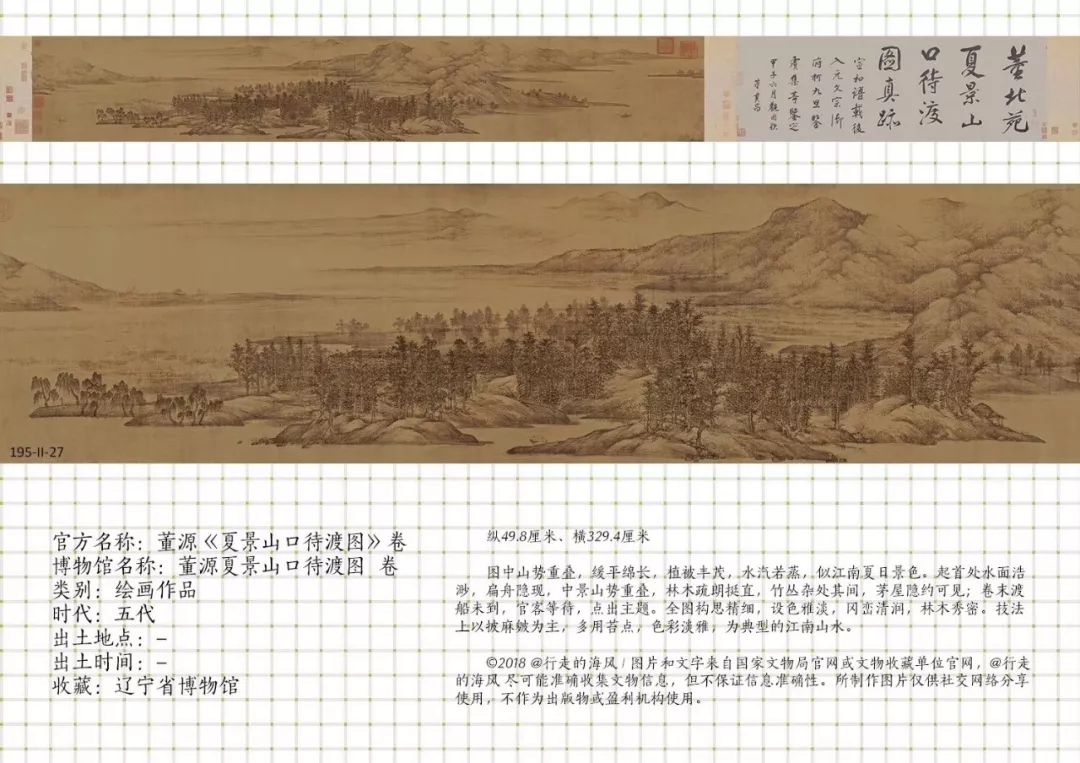 董北苑
夏景山
口待渡
圖真跡
宣和譜載後
入元文宗御
府柯九思鑒
虞集等鑒定
甲子六月觀因
董其昌
195-II-27
官方名称：董源《夏景山口待渡图》卷
博物馆名称：董源夏景山口待渡图 卷
类别：绘画作品
时代：五代
出土地点：–
出土时间：–
收藏：辽宁省博物馆
纵49.8厘米、横329.4厘米
图中山势重叠，缓平绵长，植被丰茂，水汽若蒸，似江南夏日景色。起首处水面浩
渺，扁舟隐现，中景山势重叠，林木疏朗挺直，竹丛杂处其间，茅屋隐约可见；卷末渡
船未到，官客等待，点出主题。全图构思精细，设色雅淡，冈峦清润，林木秀密。技法
上以披麻皴为主，多用苔点，色彩淡雅，为典型的江南山水。
©2018 @行走的海风 / 图片和文字来自国家文物局官网或文物收藏单位官网，@行走
的海风 尽可能准确收集文物信息，但不保证信息准确性。所制作图片仅供社交网络分享
使用，不作为出版物或盈利机构使用。